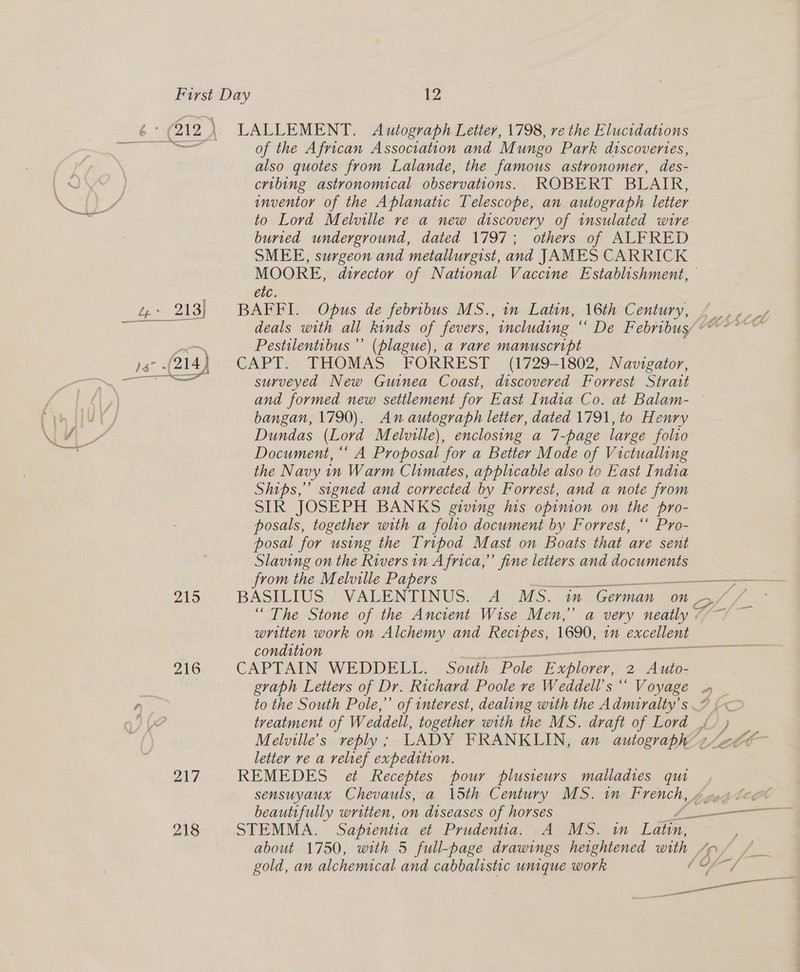 First Day 12
6 - (212) LALLEMENT. Autograph Letter, 1798, re the Elucidations
of the African Association and Mungo Park discoveries,
also quotes from Lalande, the famous astronomer, des-
cribing astronomical observations. ROBERT BLAIR,
inventor of the Aplanatic Telescope, an autograph letter
to Lord Melville re a new discovery of insulated wire
buried underground, dated 1797; others of ALFRED
SMEE, surgeon and metallurgist, and JAMES CARRICK
MOORE, director of National Vaccine Establishment,
etc.
213 BAFFI. Opus de febribus MS., in Latin, 16th Century,
deals with all kinds of fevers, including “ De Febribus
Pestilentibus ” (plague), a rare manuscript
(214) CAPT. THOMAS FORREST (1729-1802, Navigator,
surveyed New Guinea Coast, discovered Forrest Strait
and formed new settlement for East India Co. at Balam-
bangan, 1790). An autograph letter, dated 1791, to Henry
Dundas (Lord Melville), enclosing a 7-page large folio
Document, “ A Proposal for a Better Mode of Victualling
the Navy in Warm Climates, applicable also to East India
Ships,” signed and corrected by Forrest, and a note from
SIR JOSEPH BANKS giving his opinion on the pro-
posals, together with a folio document by Forrest, “ Pro-
posal for using the Tripod Mast on Boats that are sent
Slaving on the Rivers in Africa,” fine letters and documents
from the Melville Papers
215 BASILIUS VALENTINUS. A MS. in German on
“ The Stone of the Ancient Wise Men,” a very neatly
written work on Alchemy and Recipes, 1690, in excellent
condition
216 CAPTAIN WEDDELL. South Pole Explorer, 2 Auto-
graph Letters of Dr. Richard Poole re Weddell's “ Voyage
to the South Pole,” of interest, dealing with the Admiralty's
treatment of Weddell, together with the MS. draft of Lord
Melville's reply; LADY FRANKLIN, an autograph
letter re a relief expedition.
217 REMEDES et Receptes pour plusieurs malladies qui
sensuyaux Chevauls, a 15th Century MS. in French,
beautifully written, on diseases of horses
218 STEMMA. Sapientia et Prudentia. A MS. in Latin,
about 1750, with 5 full-page drawings heightened with
gold, an alchemical and cabbalistic unique work